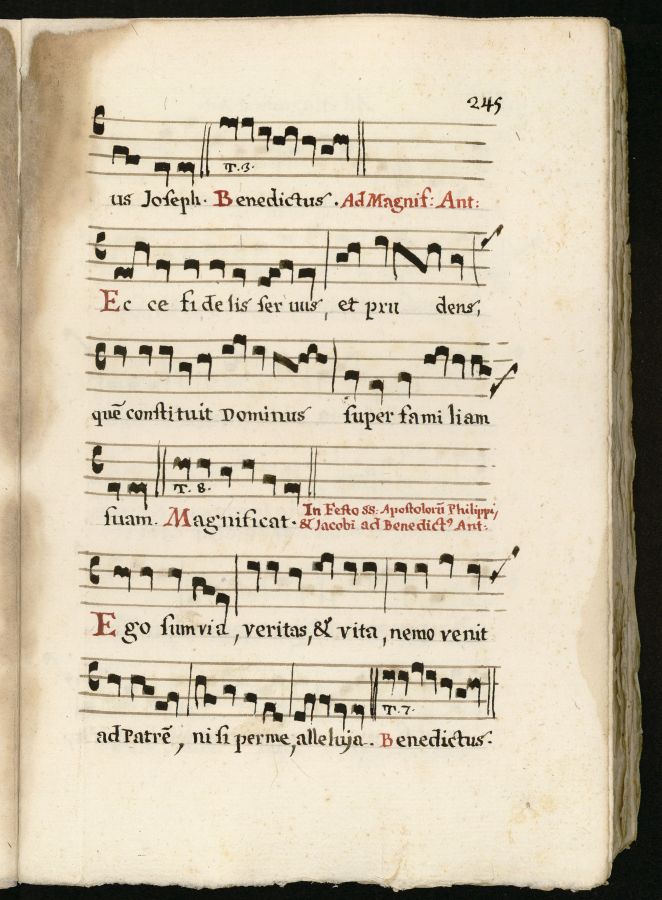 245
T. 3.
us Joseph. Benedictus. Ad Magnif: Ant:
Ec ce fi de lis ser uus, et pru dens,
quē constituit Dominus super fami liam
T. 8.
suam. Magnificat. In Festo SS: Apostolorū Philippi,
& Jacobi ad Benedict⁹ Ant:
Ego sum via, veritas, & vita, nemo venit
T. 7.
ad Patrē, ni si per me, alleluja. Benedictus.